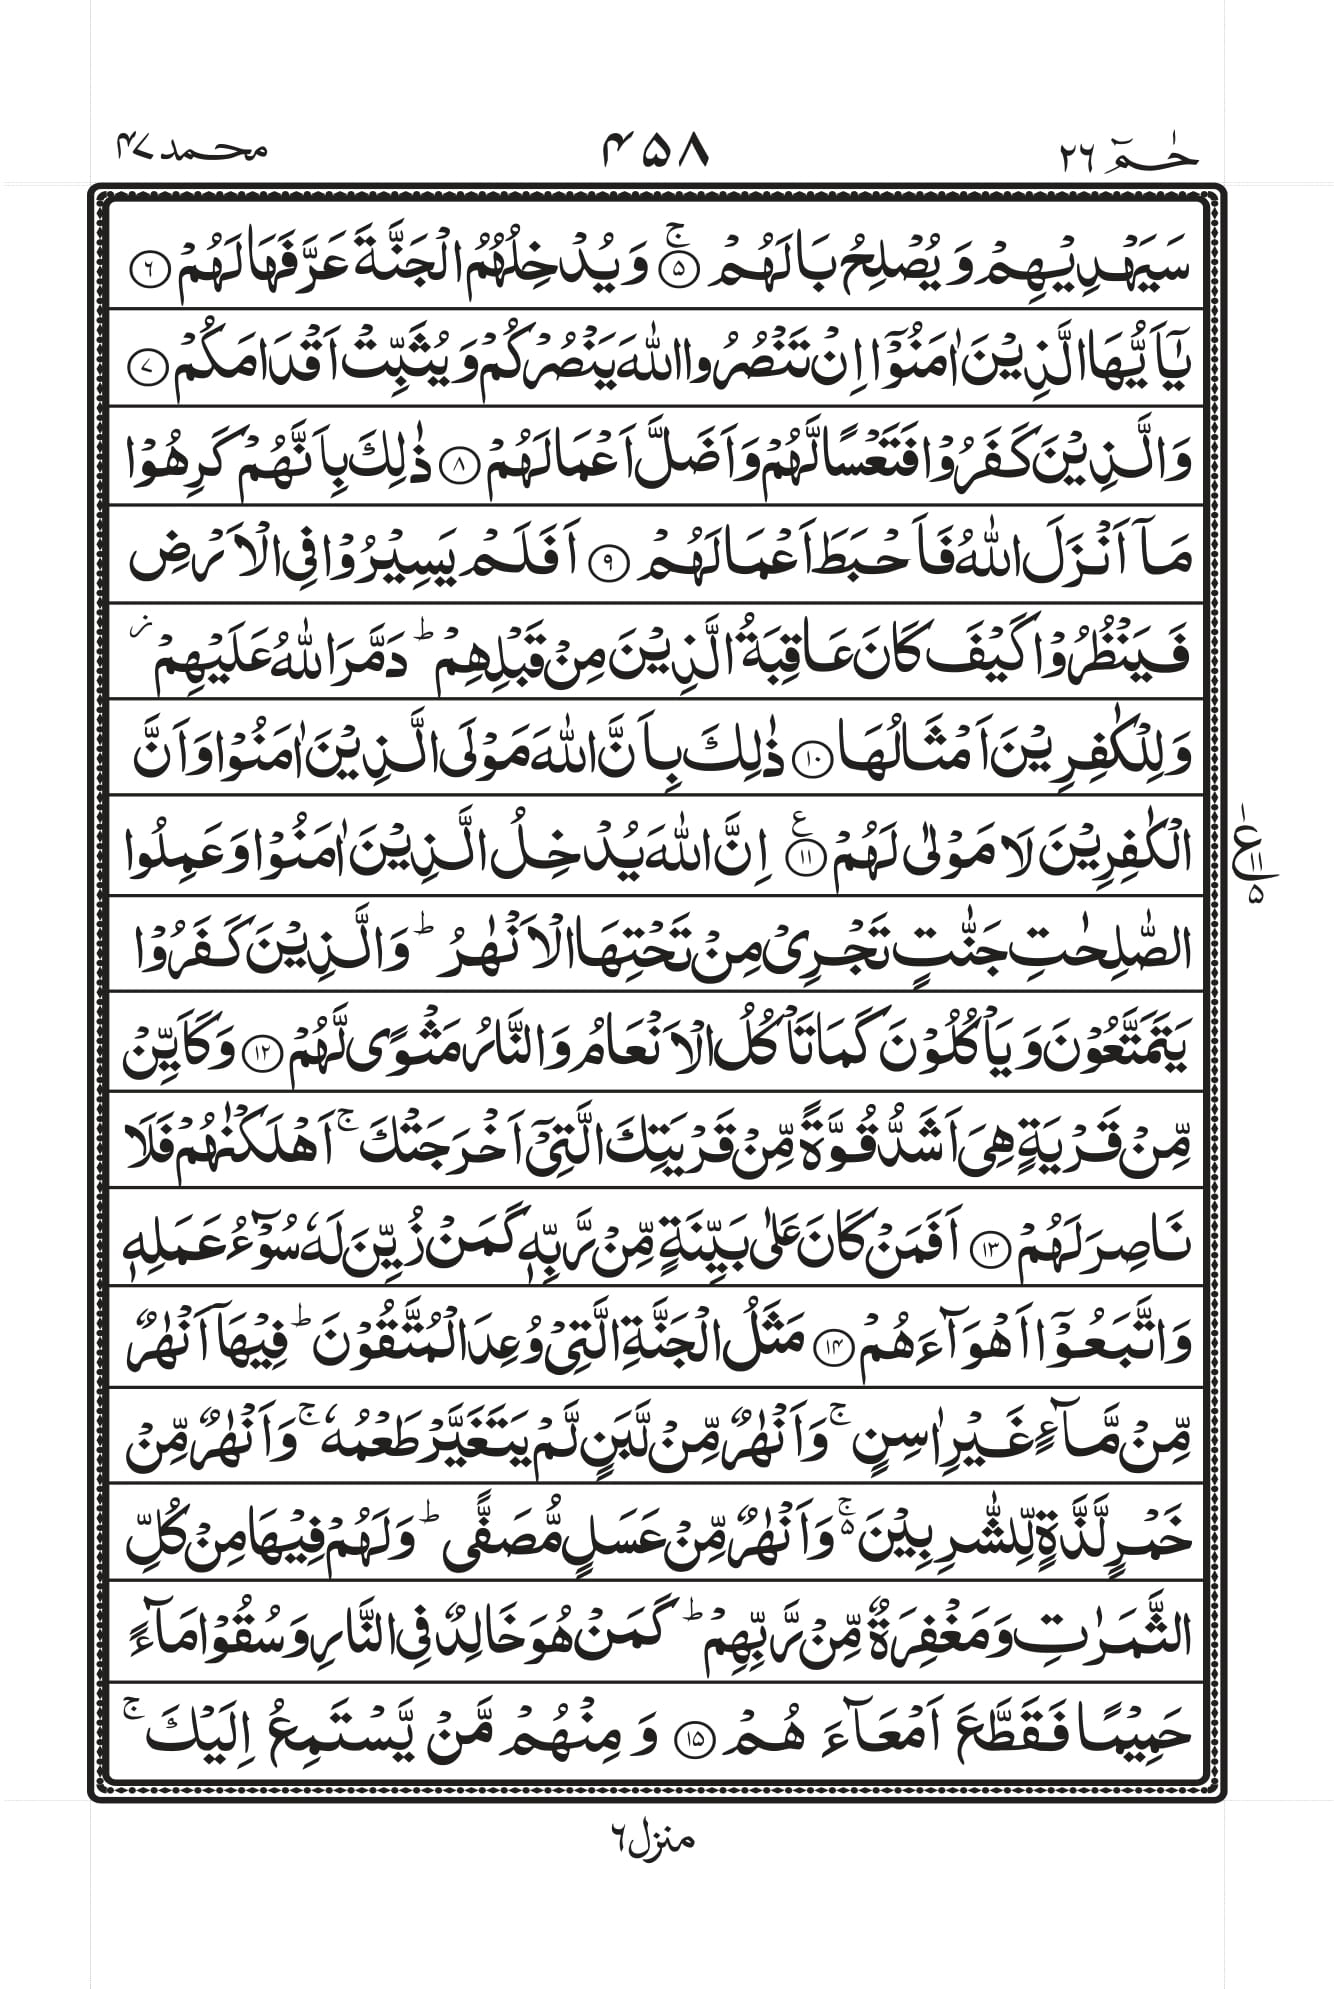 حٰمٓ ٢٦
۴۵۸
محمد ۴۷
سَيَهْدِيْهِمْ وَيُصْلِحُ بَالَهُمْ ۚ﴿۵﴾ وَيُدْخِلُهُمُ الْجَنَّةَ عَرَّفَهَا لَهُمْ ﴿۶﴾
يٰٓاَيُّهَا الَّذِيْنَ اٰمَنُوْٓا اِنْ تَنْصُرُوا اللّٰهَ يَنْصُرْكُمْ وَيُثَبِّتْ اَقْدَامَكُمْ ﴿۷﴾
وَالَّذِيْنَ كَفَرُوْا فَتَعْسًا لَّهُمْ وَاَضَلَّ اَعْمَالَهُمْ ﴿۸﴾ ذٰلِكَ بِاَنَّهُمْ كَرِهُوْا
مَآ اَنْزَلَ اللّٰهُ فَاَحْبَطَ اَعْمَالَهُمْ ﴿۹﴾ اَفَلَمْ يَسِيْرُوْا فِى الْاَرْضِ
فَيَنْظُرُوْا كَيْفَ كَانَ عَاقِبَةُ الَّذِيْنَ مِنْ قَبْلِهِمْ ؕ دَمَّرَ اللّٰهُ عَلَيْهِمْ ز
وَلِلْكٰفِرِيْنَ اَمْثَالُهَا ﴿۱۰﴾ ذٰلِكَ بِاَنَّ اللّٰهَ مَوْلَى الَّذِيْنَ اٰمَنُوْا وَاَنَّ
الْكٰفِرِيْنَ لَا مَوْلٰى لَهُمْ ﴿۱۱﴾ ع اِنَّ اللّٰهَ يُدْخِلُ الَّذِيْنَ اٰمَنُوْا وَعَمِلُوا
ع ١ ١١ ۵
الصّٰلِحٰتِ جَنّٰتٍ تَجْرِىْ مِنْ تَحْتِهَا الْاَنْهٰرُ ؕ وَالَّذِيْنَ كَفَرُوْا
يَتَمَتَّعُوْنَ وَيَاْكُلُوْنَ كَمَا تَاْكُلُ الْاَنْعَامُ وَالنَّارُ مَثْوًى لَّهُمْ ﴿۱۲﴾ وَكَاَيِّنْ
مِّنْ قَرْيَةٍ هِىَ اَشَدُّ قُوَّةً مِّنْ قَرْيَتِكَ الَّتِىْٓ اَخْرَجَتْكَ ۚ اَهْلَكْنٰهُمْ فَلَا
نَاصِرَ لَهُمْ ﴿۱۳﴾ اَفَمَنْ كَانَ عَلٰى بَيِّنَةٍ مِّنْ رَّبِّهٖ كَمَنْ زُيِّنَ لَهٗ سُوْٓءُ عَمَلِهٖ
وَاتَّبَعُوْٓا اَهْوَآءَهُمْ ﴿۱۴﴾ مَثَلُ الْجَنَّةِ الَّتِىْ وُعِدَ الْمُتَّقُوْنَ ؕ فِيْهَآ اَنْهٰرٌ
مِّنْ مَّآءٍ غَيْرِ اٰسِنٍ ۚ وَاَنْهٰرٌ مِّنْ لَّبَنٍ لَّمْ يَتَغَيَّرْ طَعْمُهٗ ۚ وَاَنْهٰرٌ مِّنْ
خَمْرٍ لَّذَّةٍ لِّلشّٰرِبِيْنَ ۚ۵ وَاَنْهٰرٌ مِّنْ عَسَلٍ مُّصَفًّى ؕ وَلَهُمْ فِيْهَا مِنْ كُلِّ
الثَّمَرٰتِ وَمَغْفِرَةٌ مِّنْ رَّبِّهِمْ ؕ كَمَنْ هُوَ خَالِدٌ فِى النَّارِ وَسُقُوْا مَآءً
حَمِيْمًا فَقَطَّعَ اَمْعَآءَ هُمْ ﴿۱۵﴾ وَ مِنْهُمْ مَّنْ يَّسْتَمِعُ اِلَيْكَ ۚ
منزل ٦